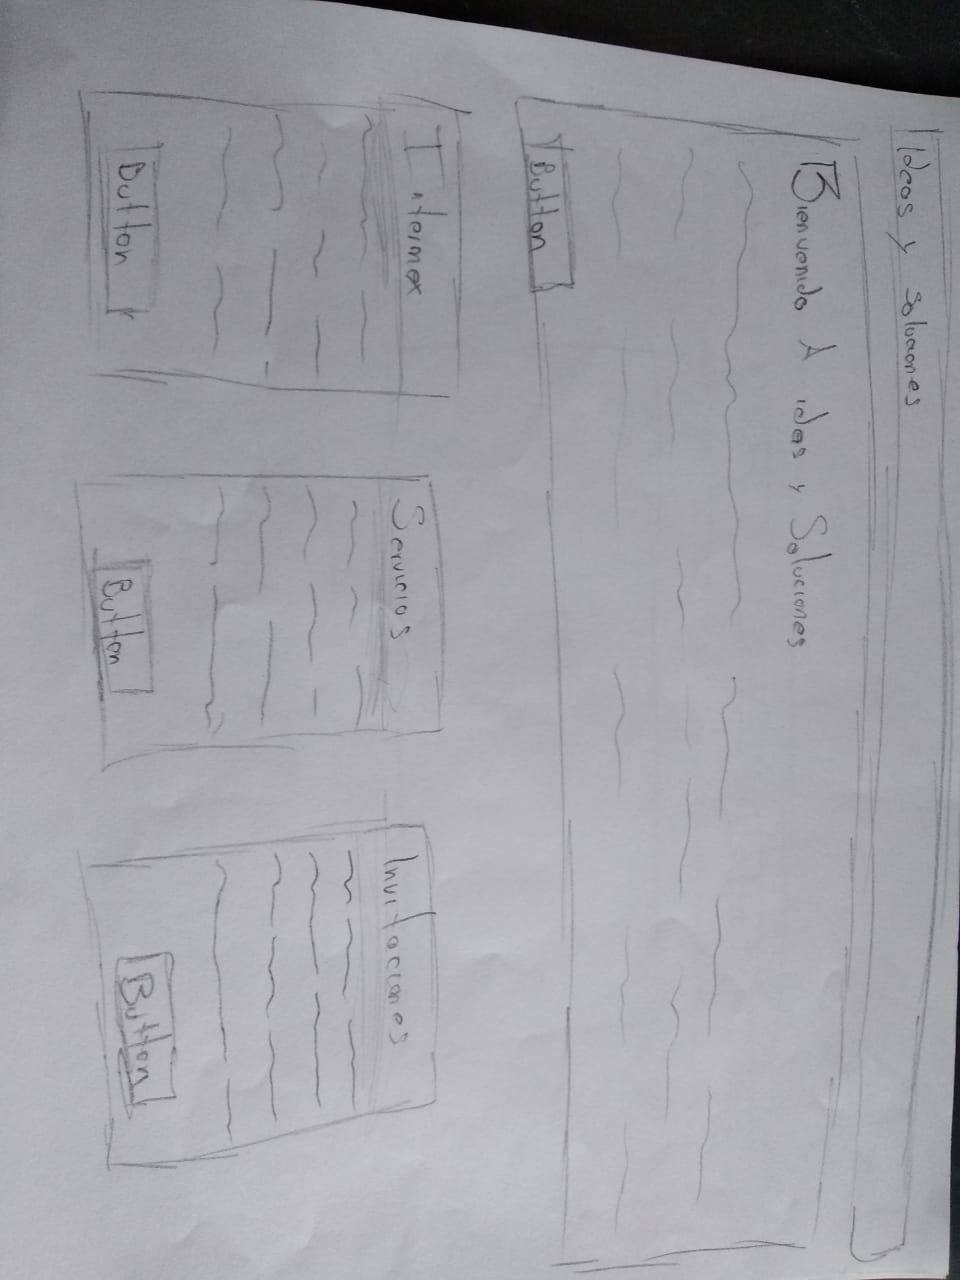 Ideas y soluciones
Bienvenido A ideas y Soluciones
Button
Intermex
Button
Servicios
Button
Invitaciones
Button